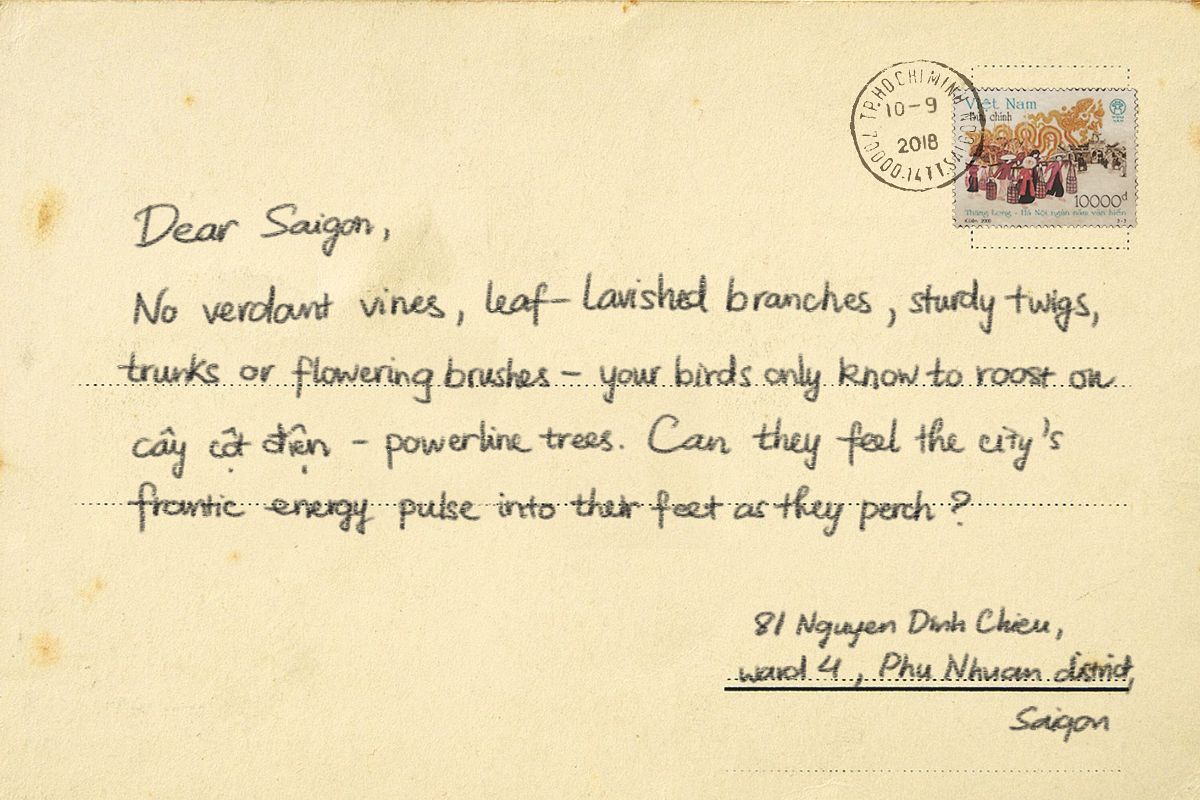 TP.HO CHI MINH NOI SAIGON
10-9
2018
70000.14TT.
Việt Nam
Bưu chính
10000đ
Thăng Long - Hà Nội ngàn năm văn hiến
Dear Saigon,
No verdant vines, leaf-lavished branches, sturdy twigs,
trunks or flowering brushes - your birds only know to roost on
cây cột điện - powerline trees. Can they feel the city's
frantic energy pulse into their feet as they perch?
81 Nguyen Dinh Chieu,
ward 4, Phu Nhuan district,
Saigon